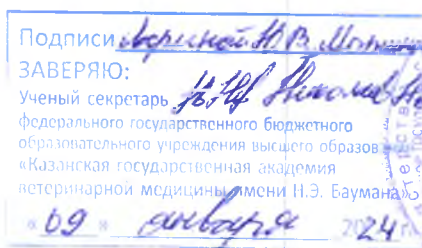 Подписи
ЗАВЕРЯЮ:
Ученый секретарь
федерального государственного бюджетного
образовательного учреждения высшего образов
«Казанская государственная академия
ветеринарной медицины имени Н.Э. Баумана»
« 09 » января 2024 г.